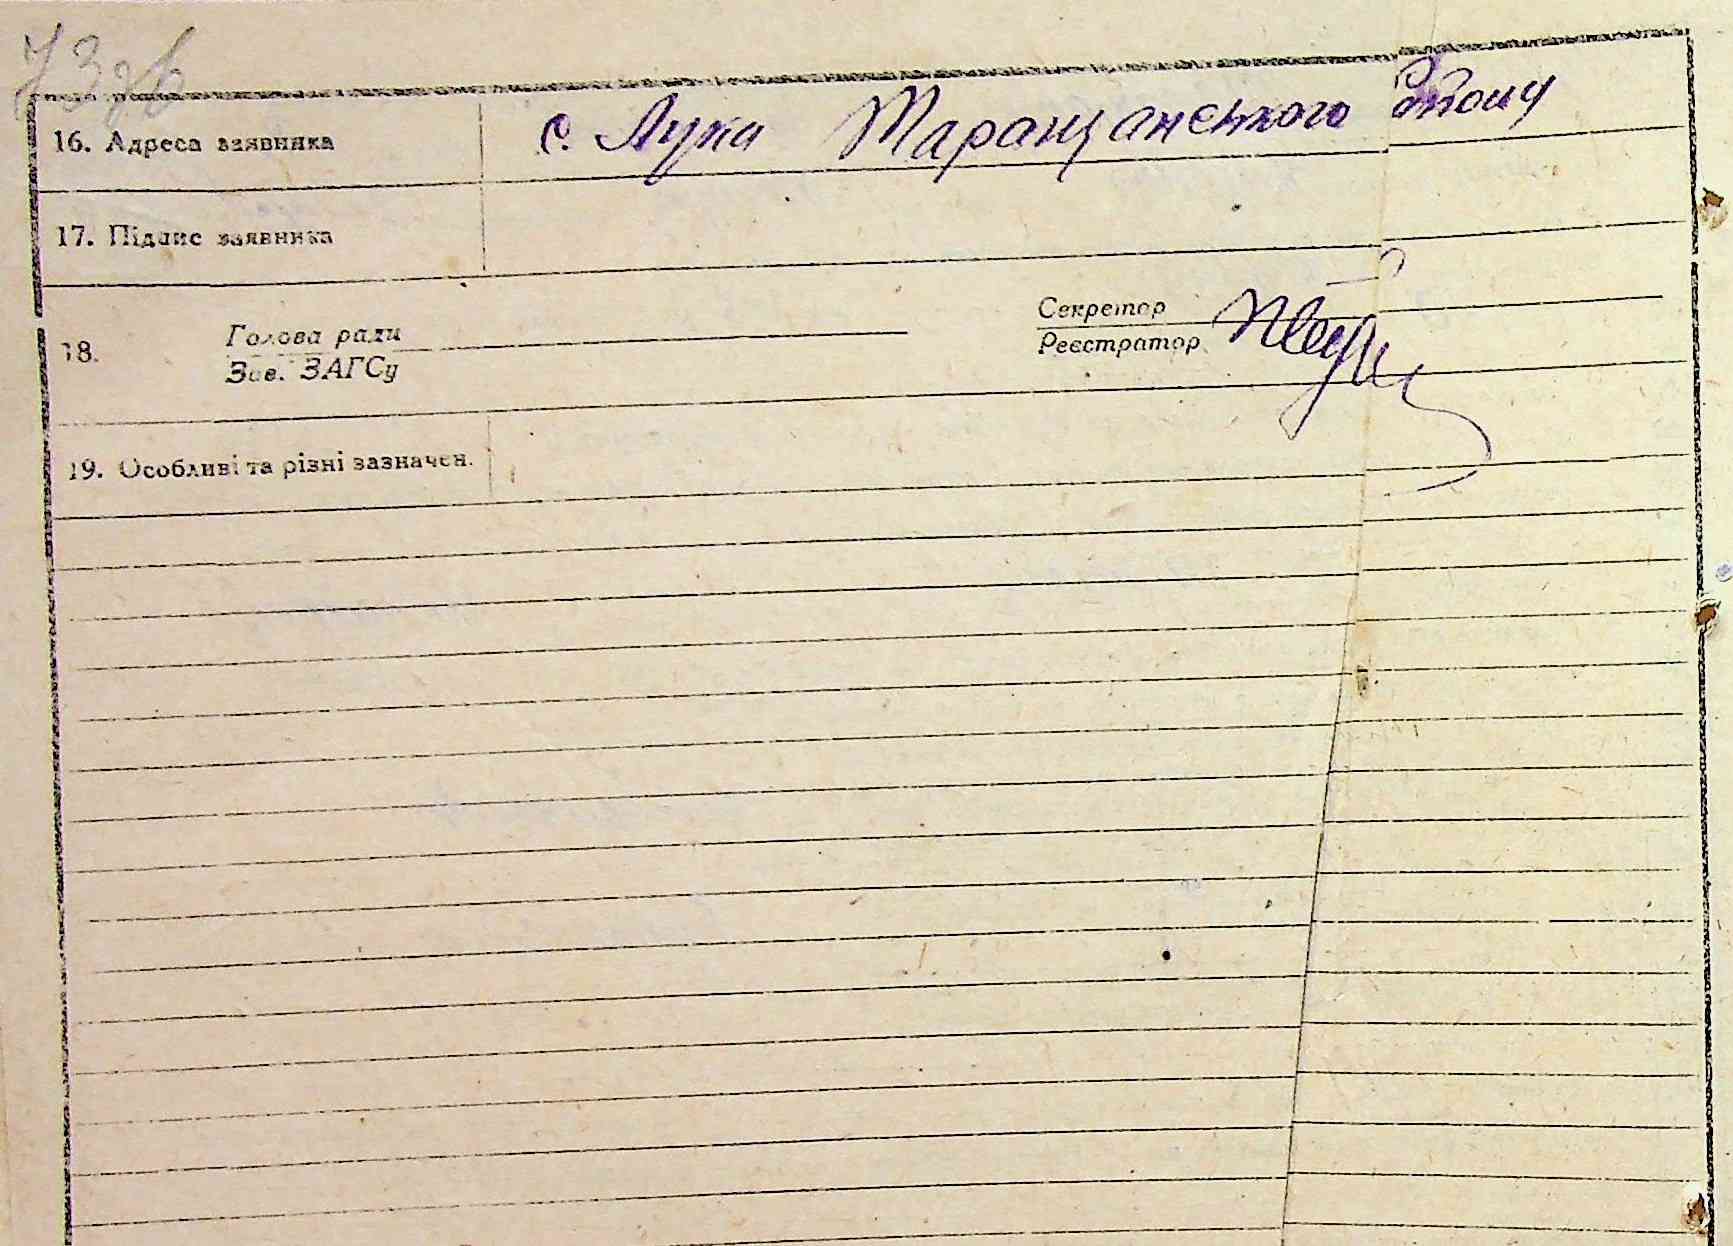 73зв
16. Адреса заявника с. Лука Таращанського району
17. Підпис заявника
18. Голова ради Секретар
Зав. ЗАГСу Реєстратор
19. Особливі та різні зазначен.